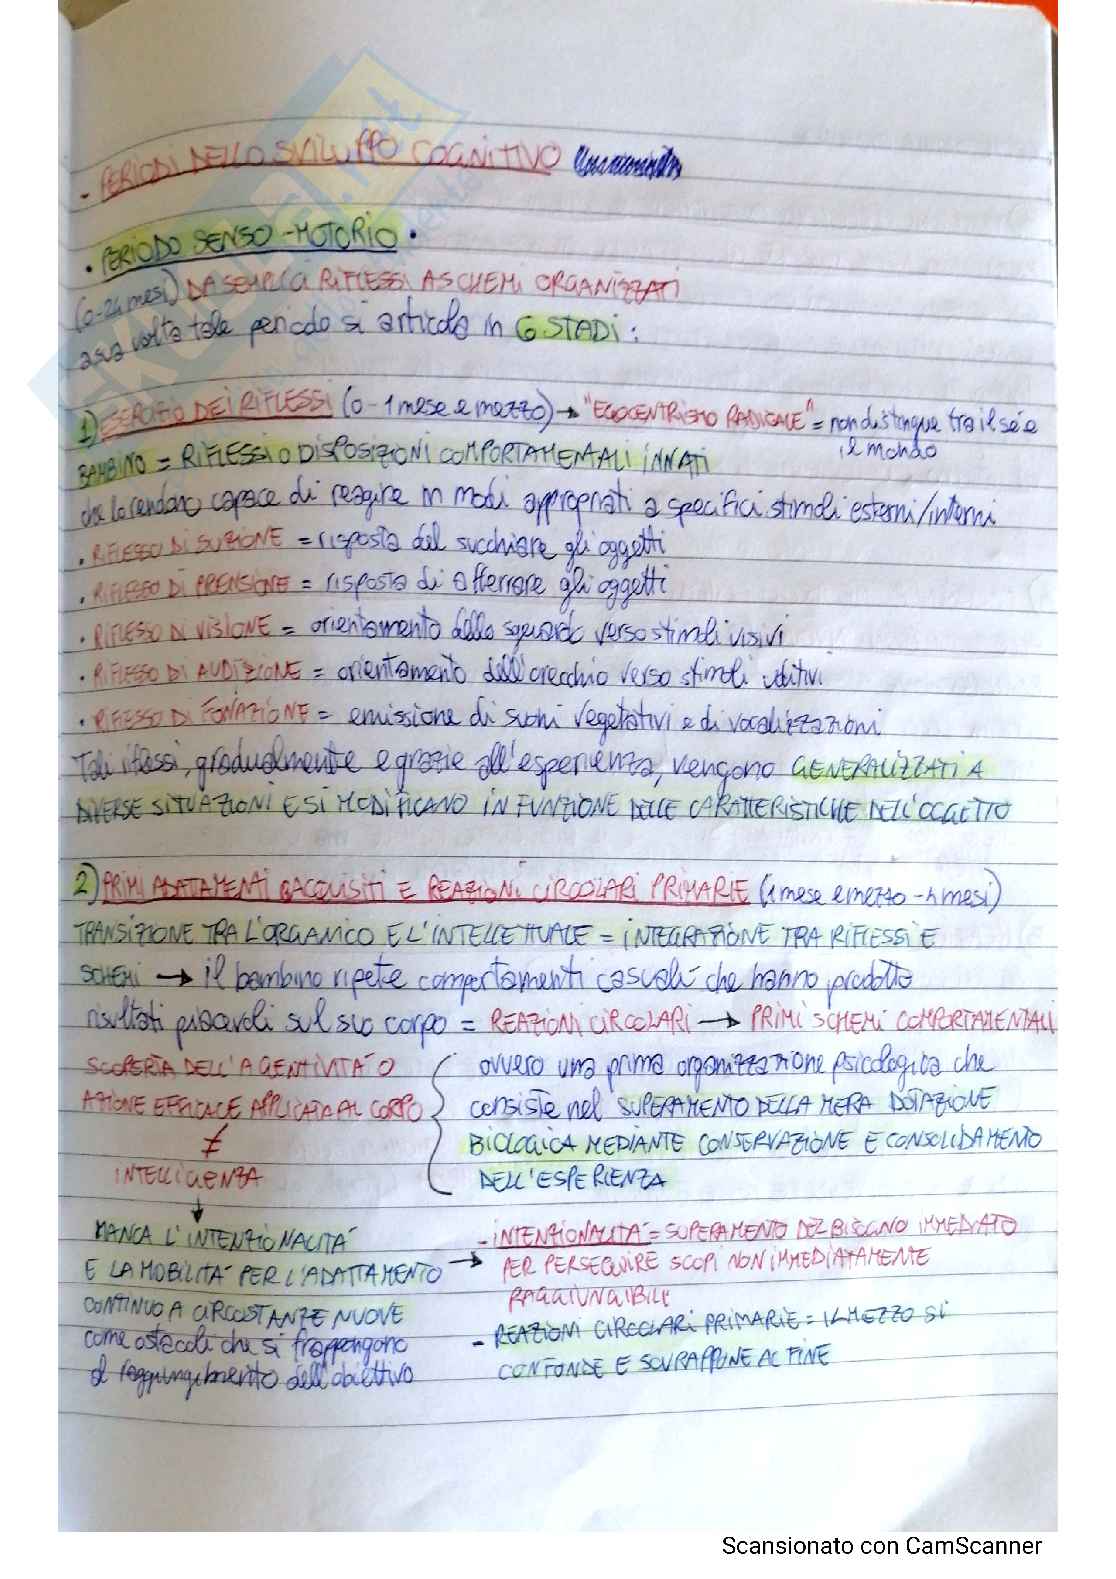 - PERIODI DELLO SVILUPPO COGNITIVO
• PERIODO SENSO-MOTORIO •
(0-24 mesi) DA SEMPLICI RIFLESSI A SCHEMI ORGANIZZATI
a sua volta tale periodo si articola in 6 STADI:
1) ESERCIZIO DEI RIFLESSI (0-1 mese e mezzo) → "EGOCENTRISMO RADICALE" = non distingue tra il sé e
il mondo
BAMBINO = RIFLESSI O DISPOSIZIONI COMPORTAMENTALI INNATI
che lo rendono capace di reagire in modi appropriati a specifici stimoli esterni/interni
• RIFLESSO DI SUZIONE = risposta del succhiare gli oggetti
• RIFLESSO DI PRENSIONE = risposta di afferrare gli oggetti
• RIFLESSO DI VISIONE = orientamento dello sguardo verso stimoli visivi
• RIFLESSO DI AUDIZIONE = orientamento dell'orecchio verso stimoli uditivi
• RIFLESSO DI FONAZIONE = emissione di suoni vegetativi e di vocalizzazioni
Tali riflessi, gradualmente e grazie all'esperienza, vengono GENERALIZZATI A
DIVERSE SITUAZIONI E SI MODIFICANO IN FUNZIONE DELLE CARATTERISTICHE DELL'OGGETTO
2) PRIMI ADATTAMENTI ACQUISITI E REAZIONI CIRCOLARI PRIMARIE (1 mese e mezzo - 4 mesi)
TRANSIZIONE TRA L'ORGANICO E L'INTELLETTUALE = INTEGRAZIONE TRA RIFLESSI E
SCHEMI → il bambino ripete comportamenti casuali che hanno prodotto
risultati piacevoli sul suo corpo = REAZIONI CIRCOLARI → PRIMI SCHEMI COMPORTAMENTALI
SCOPERTA DELL'AGENTIVITÀ O
AZIONE EFFICACE APPLICATA AL CORPO
≠
INTELLIGENZA
ovvero una prima organizzazione psicologica che
consiste nel SUPERAMENTO DELLA MERA DOTAZIONE
BIOLOGICA MEDIANTE CONSERVAZIONE E CONSOLIDAMENTO
DELL'ESPERIENZA
↓
MANCA L'INTENZIONALITÀ
E LA MOBILITÀ PER L'ADATTAMENTO →
CONTINUO A CIRCOSTANZE NUOVE
come ostacoli che si frappongono
al raggiungimento dell'obiettivo
- INTENZIONALITÀ = SUPERAMENTO DEL BISOGNO IMMEDIATO
PER PERSEGUIRE SCOPI NON IMMEDIATAMENTE
RAGGIUNGIBILI
- REAZIONI CIRCOLARI PRIMARIE = IL MEZZO SI
CONFONDE E SOVRAPPONE AL FINE
Scansionato con CamScanner